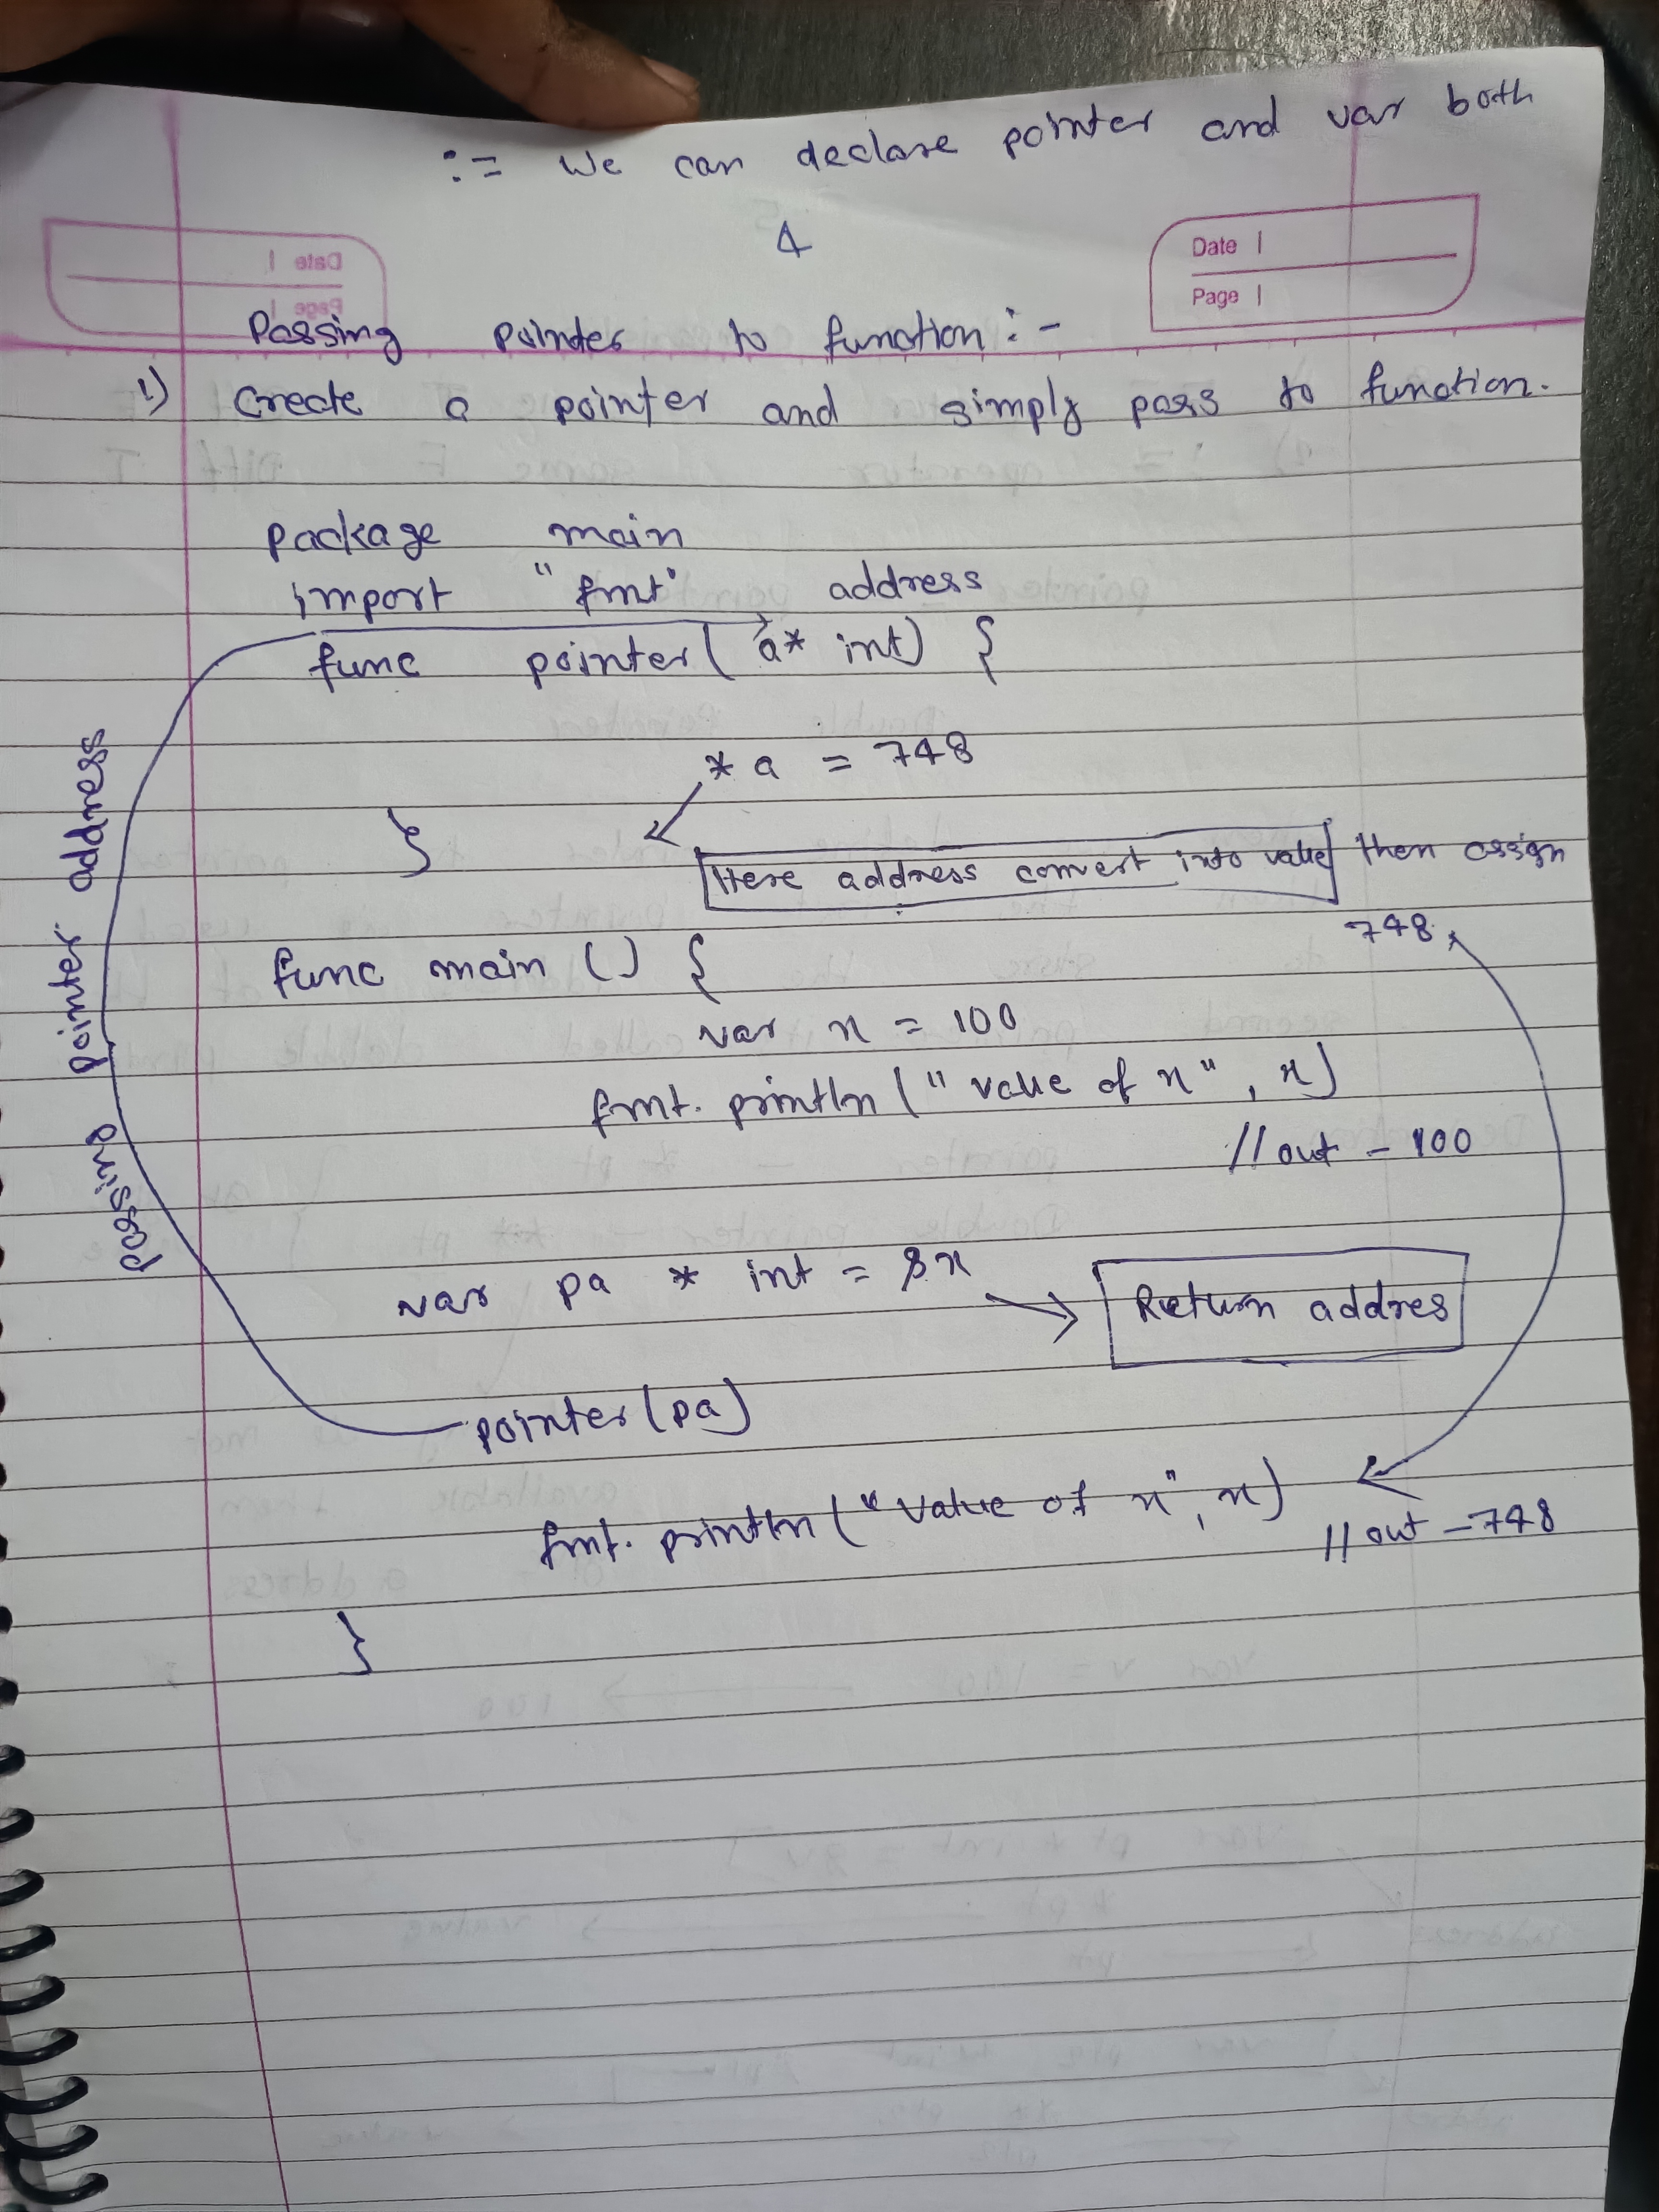 := We can declare pointer and var both
4
Date
Page
Passing pointer to function:-
1) Create a pointer and simply pass to function.
package main
import "fmt" address
func pointer( a* int) {
* a = 748
}
Here address convert into value then assign
748
func main () {
var x = 100
fmt. println (" value of x" , x)
// out - 100
var pa * int = &x → Return addres
pointer (pa)
fmt. println ( " value of x" , x)
// out - 748
}
passing pointer address